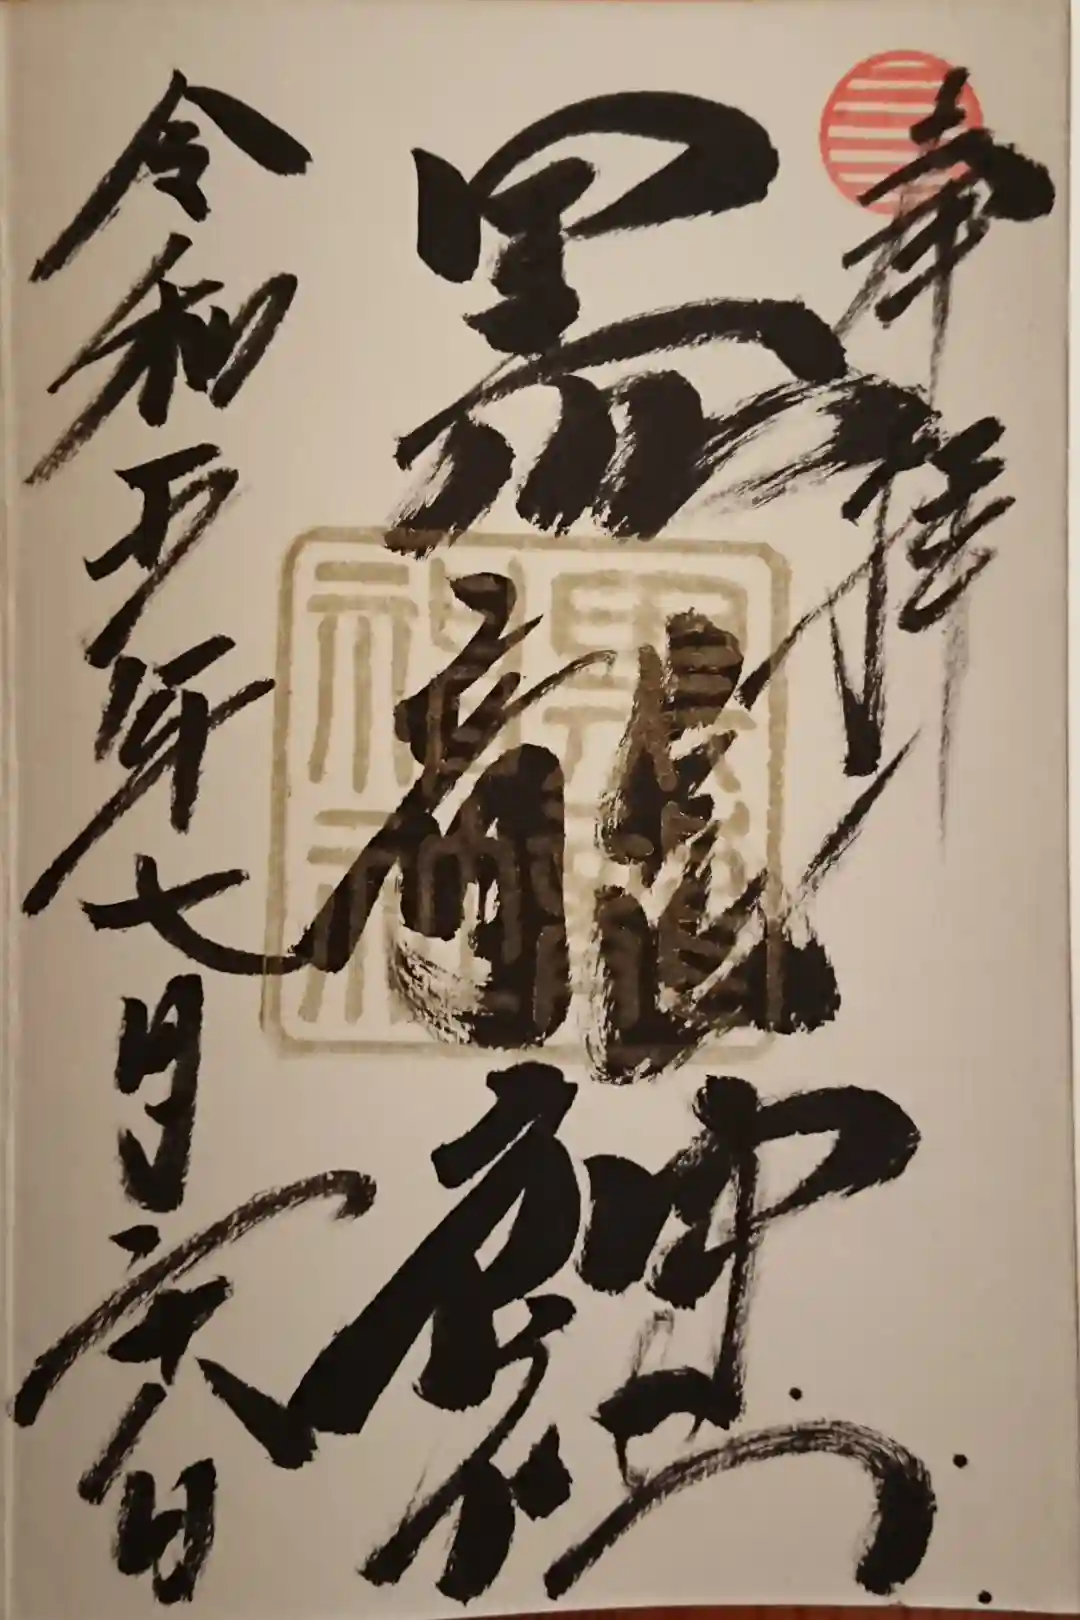 奉拝
黒龍神社
黒龍神社
令和五年七月日